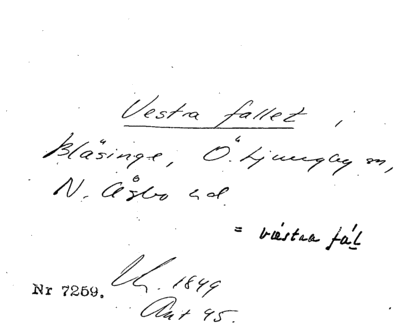 Vestra fallet,
Bläsinge, Ö. Ljungby sn,
N. Åsbo hd.
= västra fál
Nr 7259.
1849
Akt 95.